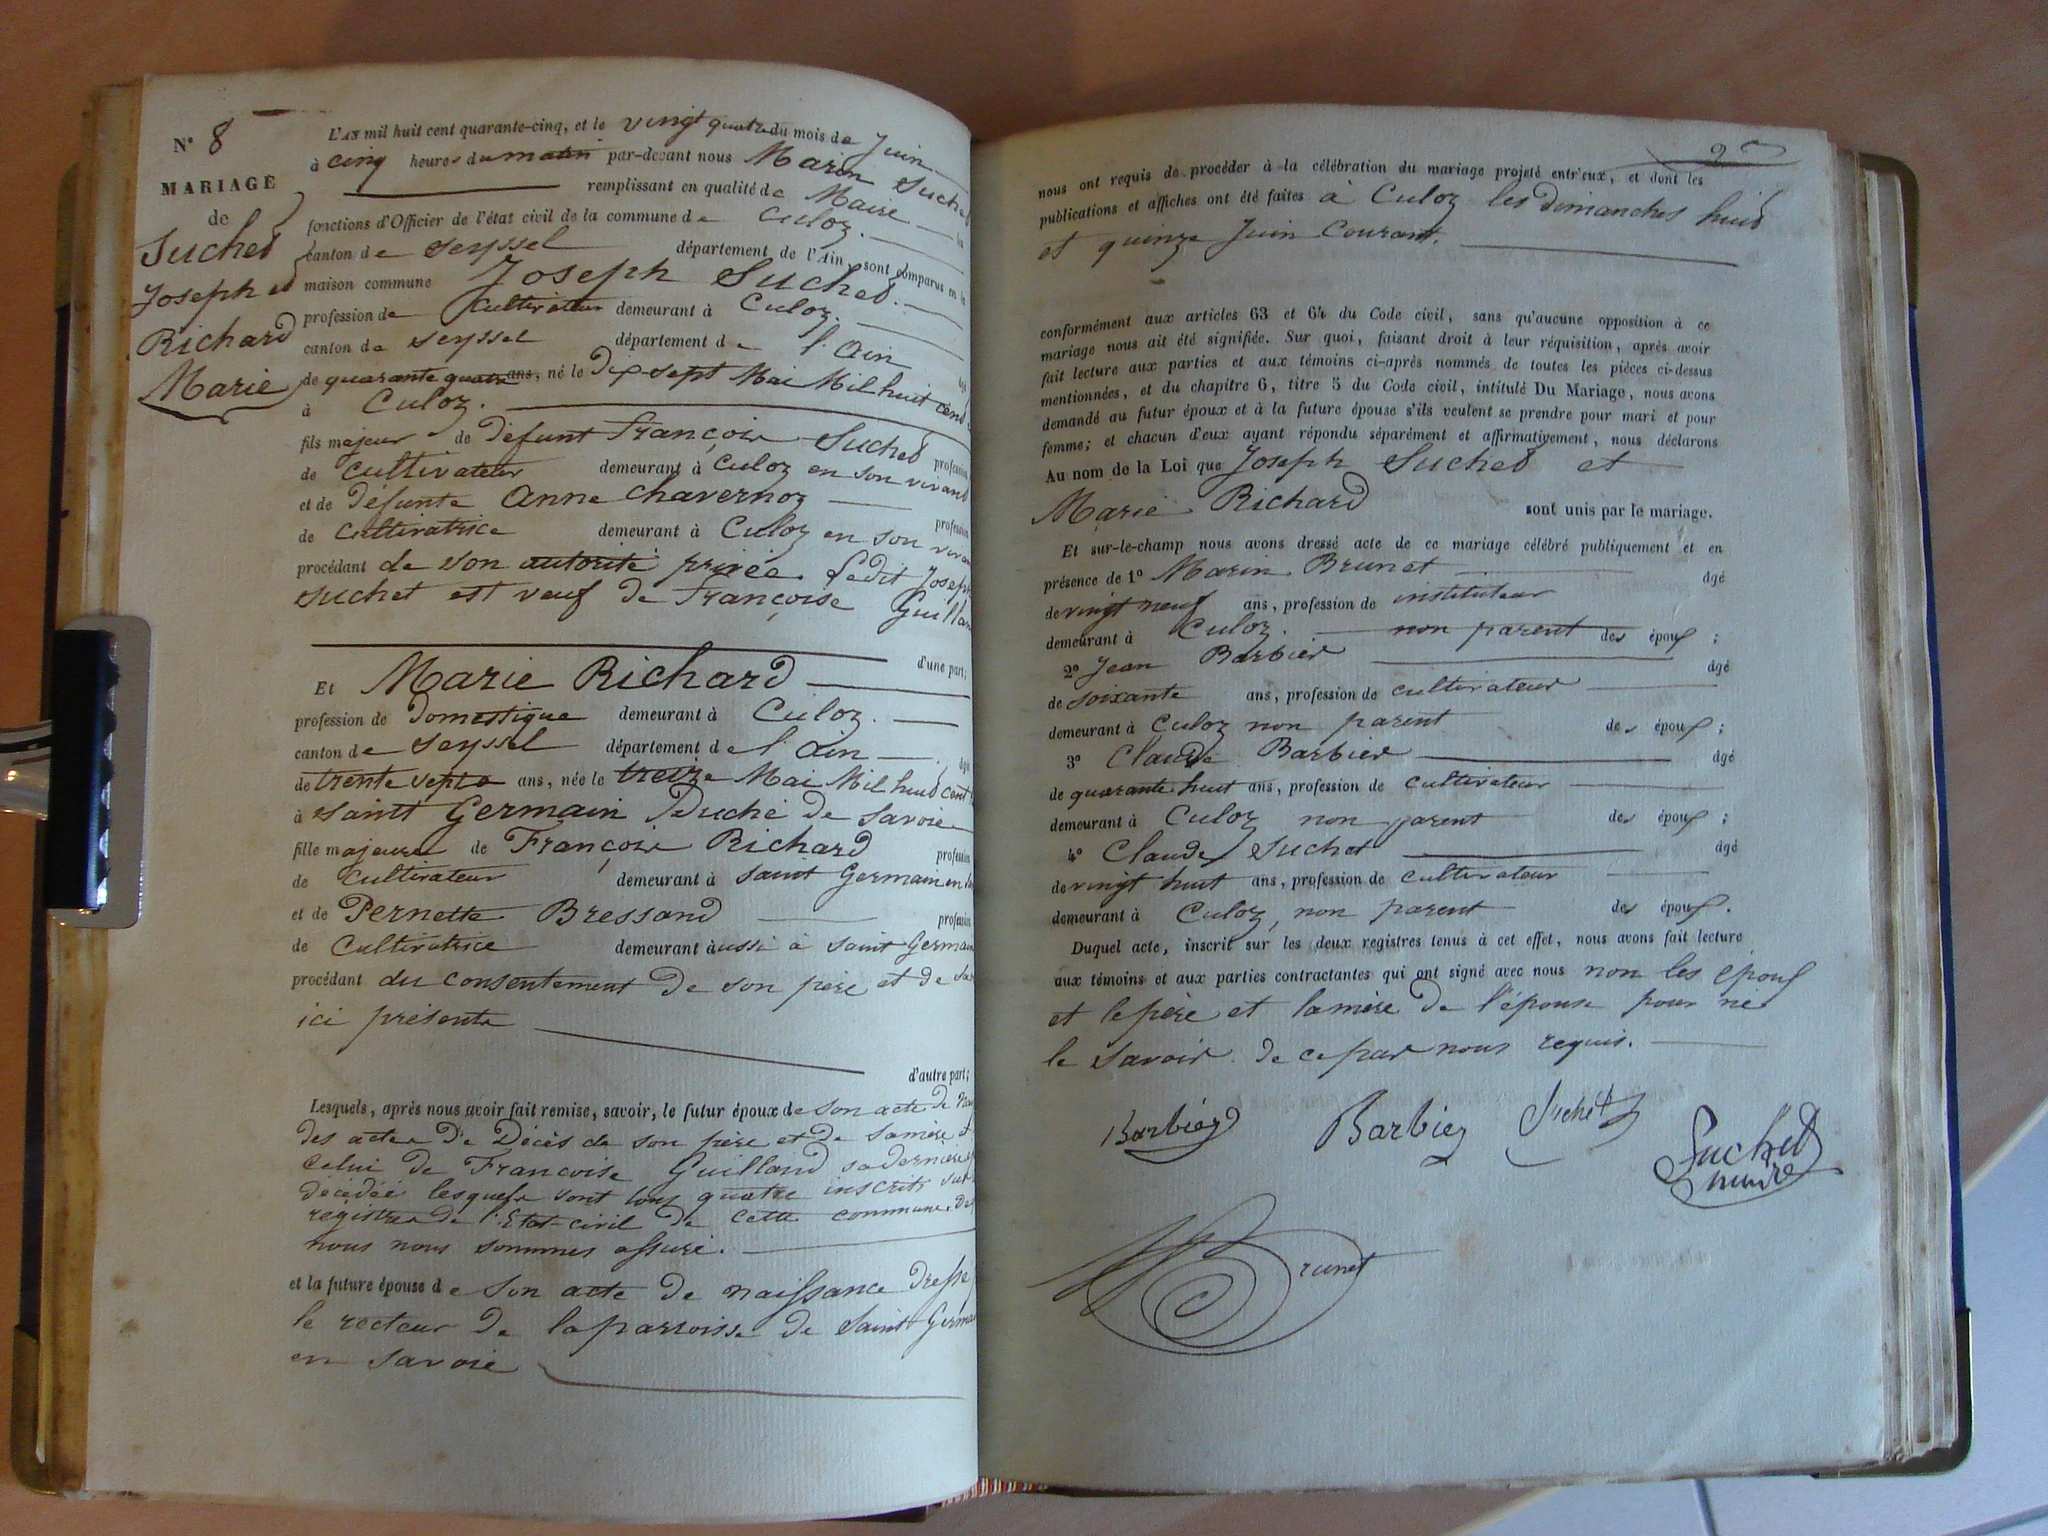 N° 8
MARIAGE
de
Suchet
Joseph et
Richard
Marie
L'AN mil huit cent quarante-cinq, et le vingt quatre du mois de Juin
à cinq heures du matin par-devant nous Marin Suchet
remplissant en qualité de Maire
fonctions d'Officier de l'état civil de la commune de Culoz.
canton de Seyssel département de l'Ain sont comparus en la
maison commune Joseph Suchet.
profession de Cultivateur demeurant à Culoz.
canton de Seyssel département de l'Ain
de quarante quatre ans, né le Dix sept Mai Mil huit cent
à Culoz.
fils majeur de Défunt François Suchet profession
de Cultivateur demeurant à Culoz en son vivant
et de Défunte Anne Chavernoz
profession
de Cultivatrice demeurant à Culoz en son vivant
procédant de son autorité privée. Ledit Joseph
Suchet est veuf de Françoise Guilland
d'une part;
Et Marie Richard
profession de Domestique demeurant à Culoz.
canton de Seyssel département de l'Ain âgée
de trente sept ans, née le treize Mai Mil huit cent
à Saint Germain Duché de Savoie
fille majeure de François Richard profession
de Cultivateur demeurant à Saint Germain en
et de Pernette Bressand profession
de Cultivatrice demeurant aussi à Saint Germain
procédant du consentement de son père et de sa
ici présente
d'autre part;
Lesquels, après nous avoir fait remise, savoir, le futur époux de son acte de
des actes De Décès de son père et de sa mère et
celui de Françoise Guilland sa dernière
décédée lesquels sont tous quatre inscrits sur
registres de l'Etat-civil de cette commune.
nous nous sommes assuré.
et la future épouse de son acte de naissance Dressé
le recteur de la parroisse de Saint Germain
en Savoie
nous ont requis de procéder à la célébration du mariage projeté entr'eux, et dont les
publications et affiches ont été faites à Culoz les dimanches huit
et quinze Juin Courant.
conformément aux articles 63 et 64 du Code civil, sans qu'aucune opposition à ce
mariage nous ait été signifiée. Sur quoi, faisant droit à leur réquisition, après avoir
fait lecture aux parties et aux témoins ci-après nommés de toutes les pièces ci-dessus
mentionnées, et du chapitre 6, titre 5 du Code civil, intitulé Du Mariage, nous avons
demandé au futur époux et à la future épouse s'ils veulent se prendre pour mari et pour
femme; et chacun d'eux ayant répondu séparément et affirmativement, nous déclarons
Au nom de la Loi que Joseph Suchet et
Marie Richard sont unis par le mariage.
Et sur-le-champ nous avons dressé acte de ce mariage célébré publiquement et en
présence de 1° Marin Brunet âgé
de vingt neuf ans, profession de instituteur
demeurant à Culoz. non parent des époux ;
2° Jean Barbier âgé
de soixante ans, profession de cultivateur
demeurant à Culoz non parent des époux ;
3° Claude Barbier âgé
de quarante huit ans, profession de cultivateur
demeurant à Culoz non parent des époux ;
4° Claude Suchet âgé
de vingt huit ans, profession de cultivateur
demeurant à Culoz, non parent des époux.
Duquel acte, inscrit sur les deux registres tenus à cet effet, nous avons fait lecture
aux témoins et aux parties contractantes qui ont signé avec nous non les époux
et le père et la mère de l'épouse pour ne
le savoir de ce par nous requis.
Barbier
Barbier
Suchet
Suchet
maire
Brunet